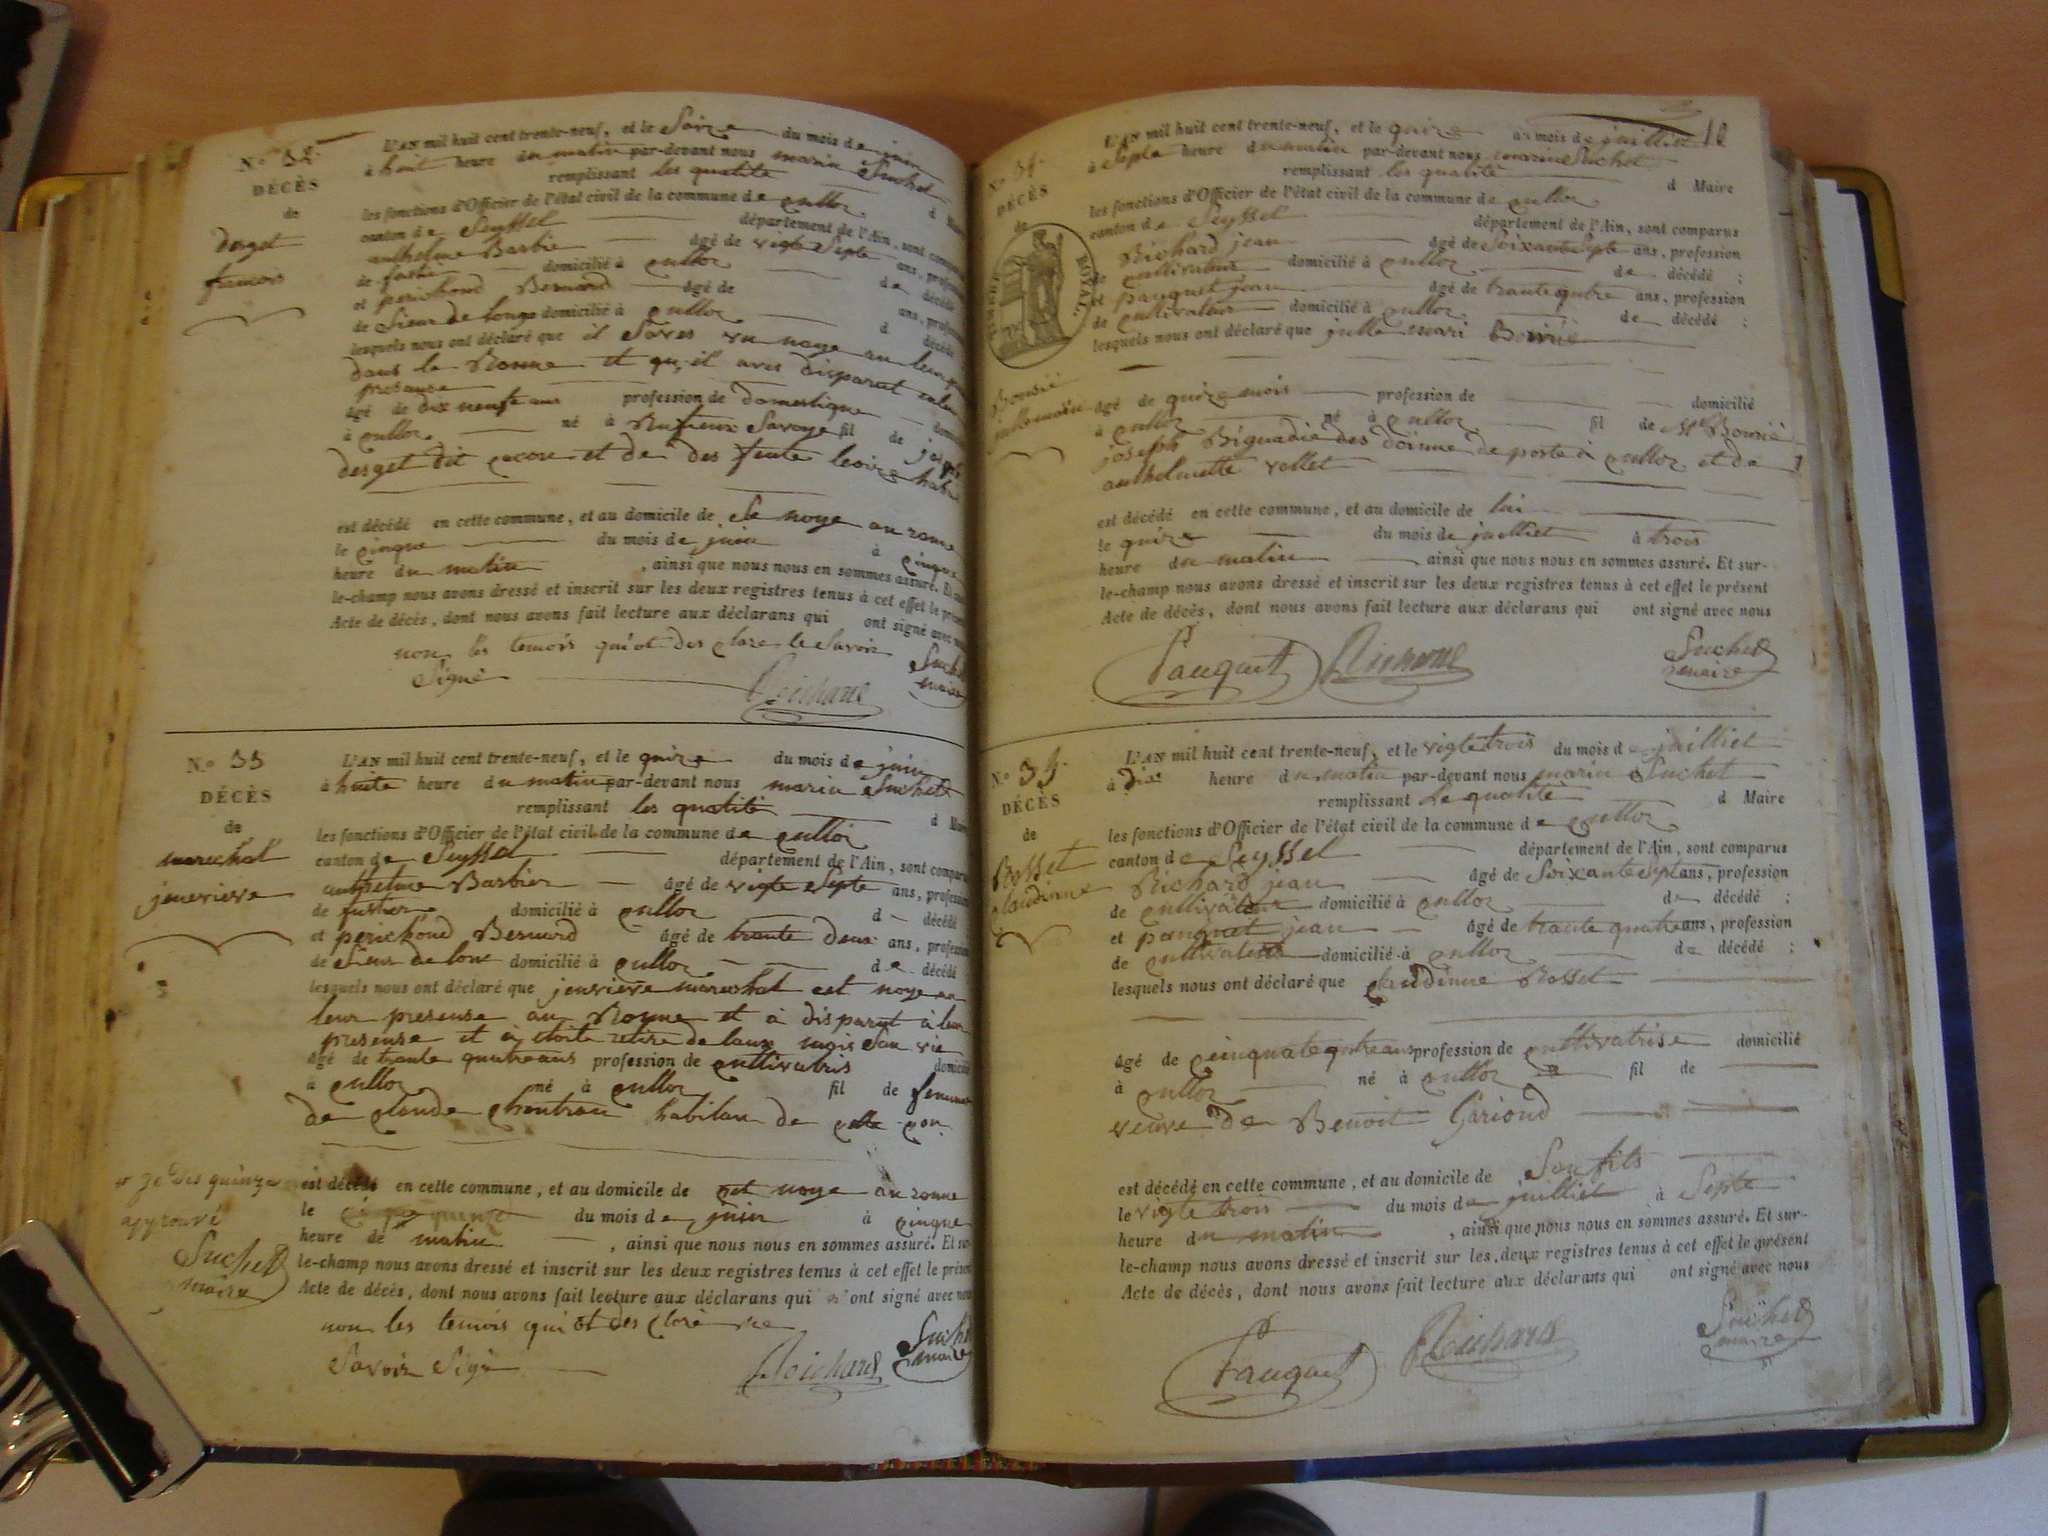 N.o 32
DÉCÈS
de
desget
francois
L'AN mil huit cent trente-neuf, et le Saize du mois de juin
à huit heure du matin par-devant nous marin Suchet
remplissant les qualité d Maire
les fonctions d'Officier de l'état civil de la commune de culloz
canton de Seyssel département de l'Ain, sont comparus
anthelme Barbie âgé de vigte Septe ans, profession
de fustie domicilié à culloz de décédé
et perichoud Bernard âgé de ans, profession
de Sieur de longe domicilié à culloz d décédé
lesquels nous ont déclaré que il Saves vu noye au leur
dans le Ronne et qu'il aves disparut
presanse
âgé de dix neufe ans profession de domestique domicilié
à culloz né à Rufieux Savoye fil de joseph
desget dit cocou et de des funte
est décédé en cette commune, et au domicile de Se noye au ronne
le cinque du mois de juin à cinque
heure du matin, ainsi que nous nous en sommes assuré. Et sur-
le-champ nous avons dressé et inscrit sur les deux registres tenus à cet effet le présent
Acte de décès, dont nous avons fait lecture aux déclarans qui ont signé avec nous
non les temois qui ot des clare le Savoir
Signé Richard Suchet
maire
N.o 33
DÉCÈS
de
marechal
jenevieve
L'AN mil huit cent trente-neuf, et le quize du mois de juin
à huite heure du matin par-devant nous marin Suchet
remplissant les qualité d Maire
les fonctions d'Officier de l'état civil de la commune de culloz
canton de Seyssel département de l'Ain, sont comparus
anthelme Barbier âgé de vigte Septe ans, profession
de fustier domicilié à culloz d décédé
et perichoud Bernard âgé de trante deux ans, profession
de Sieur de lonc domicilié à culloz de décédé
lesquels nous ont déclaré que jenvieve marechal est noye au
leur presense au Ronne et à disparut à leur
presense et à etoite retire de laux mois San vie
âgé de trante quatre ans profession de cultivatris domicilié
à culloz né à culloz fil de femme
de claude chontran habitan de cette con
est décédé en cette commune, et au domicile de est noye au ronne
le quinze du mois de juin à cinque
heure de matin, ainsi que nous nous en sommes assuré. Et sur-
le-champ nous avons dressé et inscrit sur les deux registres tenus à cet effet le présent
Acte de décès, dont nous avons fait lecture aux déclarans qui ont signé avec nous
non les temois qui ot des clare ne
Savoir Sigé Richard Suchet
maire
je dis quinze
approuvé
Suchet
maire
12
N.o 34
DÉCÈS
de
TIMBRE ROYAL
Bonsié
julle marie
L'AN mil huit cent trente-neuf, et le quize du mois de juilliet
à Septe heure du matin par-devant nous marin Suchet
remplissant les qualité d Maire
les fonctions d'Officier de l'état civil de la commune de culloz
canton de Seyssel département de l'Ain, sont comparus
Richard jean âgé de Soixante Septe ans, profession
de cultivateur domicilié à culloz de décédé ;
et pauguet jean âgé de trante qutre ans, profession
de cultivateur domicilié à culloz de décédé ;
lesquels nous ont déclaré que julle mari Bonsié
âgé de quize mois profession de domicilié
à culloz né à culloz fil de Mr Bonsié
joseph Biguadie des doinne de porte à culloz et de
anthelmette vollet
est décédé en cette commune, et au domicile de lui
le quize du mois de juilliet à trois
heure du matin, ainsi que nous nous en sommes assuré. Et sur-
le-champ nous avons dressé et inscrit sur les deux registres tenus à cet effet le présent
Acte de décès, dont nous avons fait lecture aux déclarans qui ont signé avec nous
Pauguet Richard Suchet
maire
N.o 35
DÉCÈS
de
Rosset
claudinne
L'AN mil huit cent trente-neuf, et le vigte trois du mois de juilliet
à dix heure du matin par-devant nous marin Suchet
remplissant Le qualité d Maire
les fonctions d'Officier de l'état civil de la commune de culloz
canton de Seyssel département de l'Ain, sont comparus
Richard jean âgé de Soixante Sept ans, profession
de cultivateur domicilié à culloz de décédé ;
et pauguet jean âgé de trante quatre ans, profession
de cultivateur domicilié à culloz de décédé ;
lesquels nous ont déclaré que claudinne Rosset
âgé de cinquate qutre ans profession de cultivatrise domicilié
à culloz né à culloz fil de
veuve de Benoit Gariond
est décédé en cette commune, et au domicile de Son fils
le vigte trois du mois de juilliet à Septe
heure du matin, ainsi que nous nous en sommes assuré. Et sur-
le-champ nous avons dressé et inscrit sur les deux registres tenus à cet effet le présent
Acte de décès, dont nous avons fait lecture aux déclarans qui ont signé avec nous
Pauguet Richard Suchet
maire